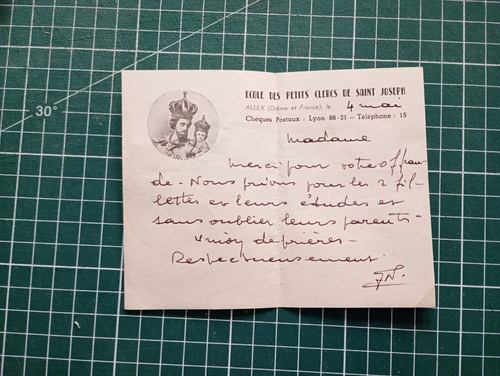 ECOLE DES PETITS CLERCS DE SAINT JOSEPH
ALLEX (Drôme et France), le 4 mai
Chèques Postaux : Lyon 88-21 — Téléphone : 15
Madame
Merci pour votre offran-
de - Nous prions pour les 2 fil-
lettes et leurs études et
sans oublier leurs parents -
Union de prières -
Respectueusement
30°